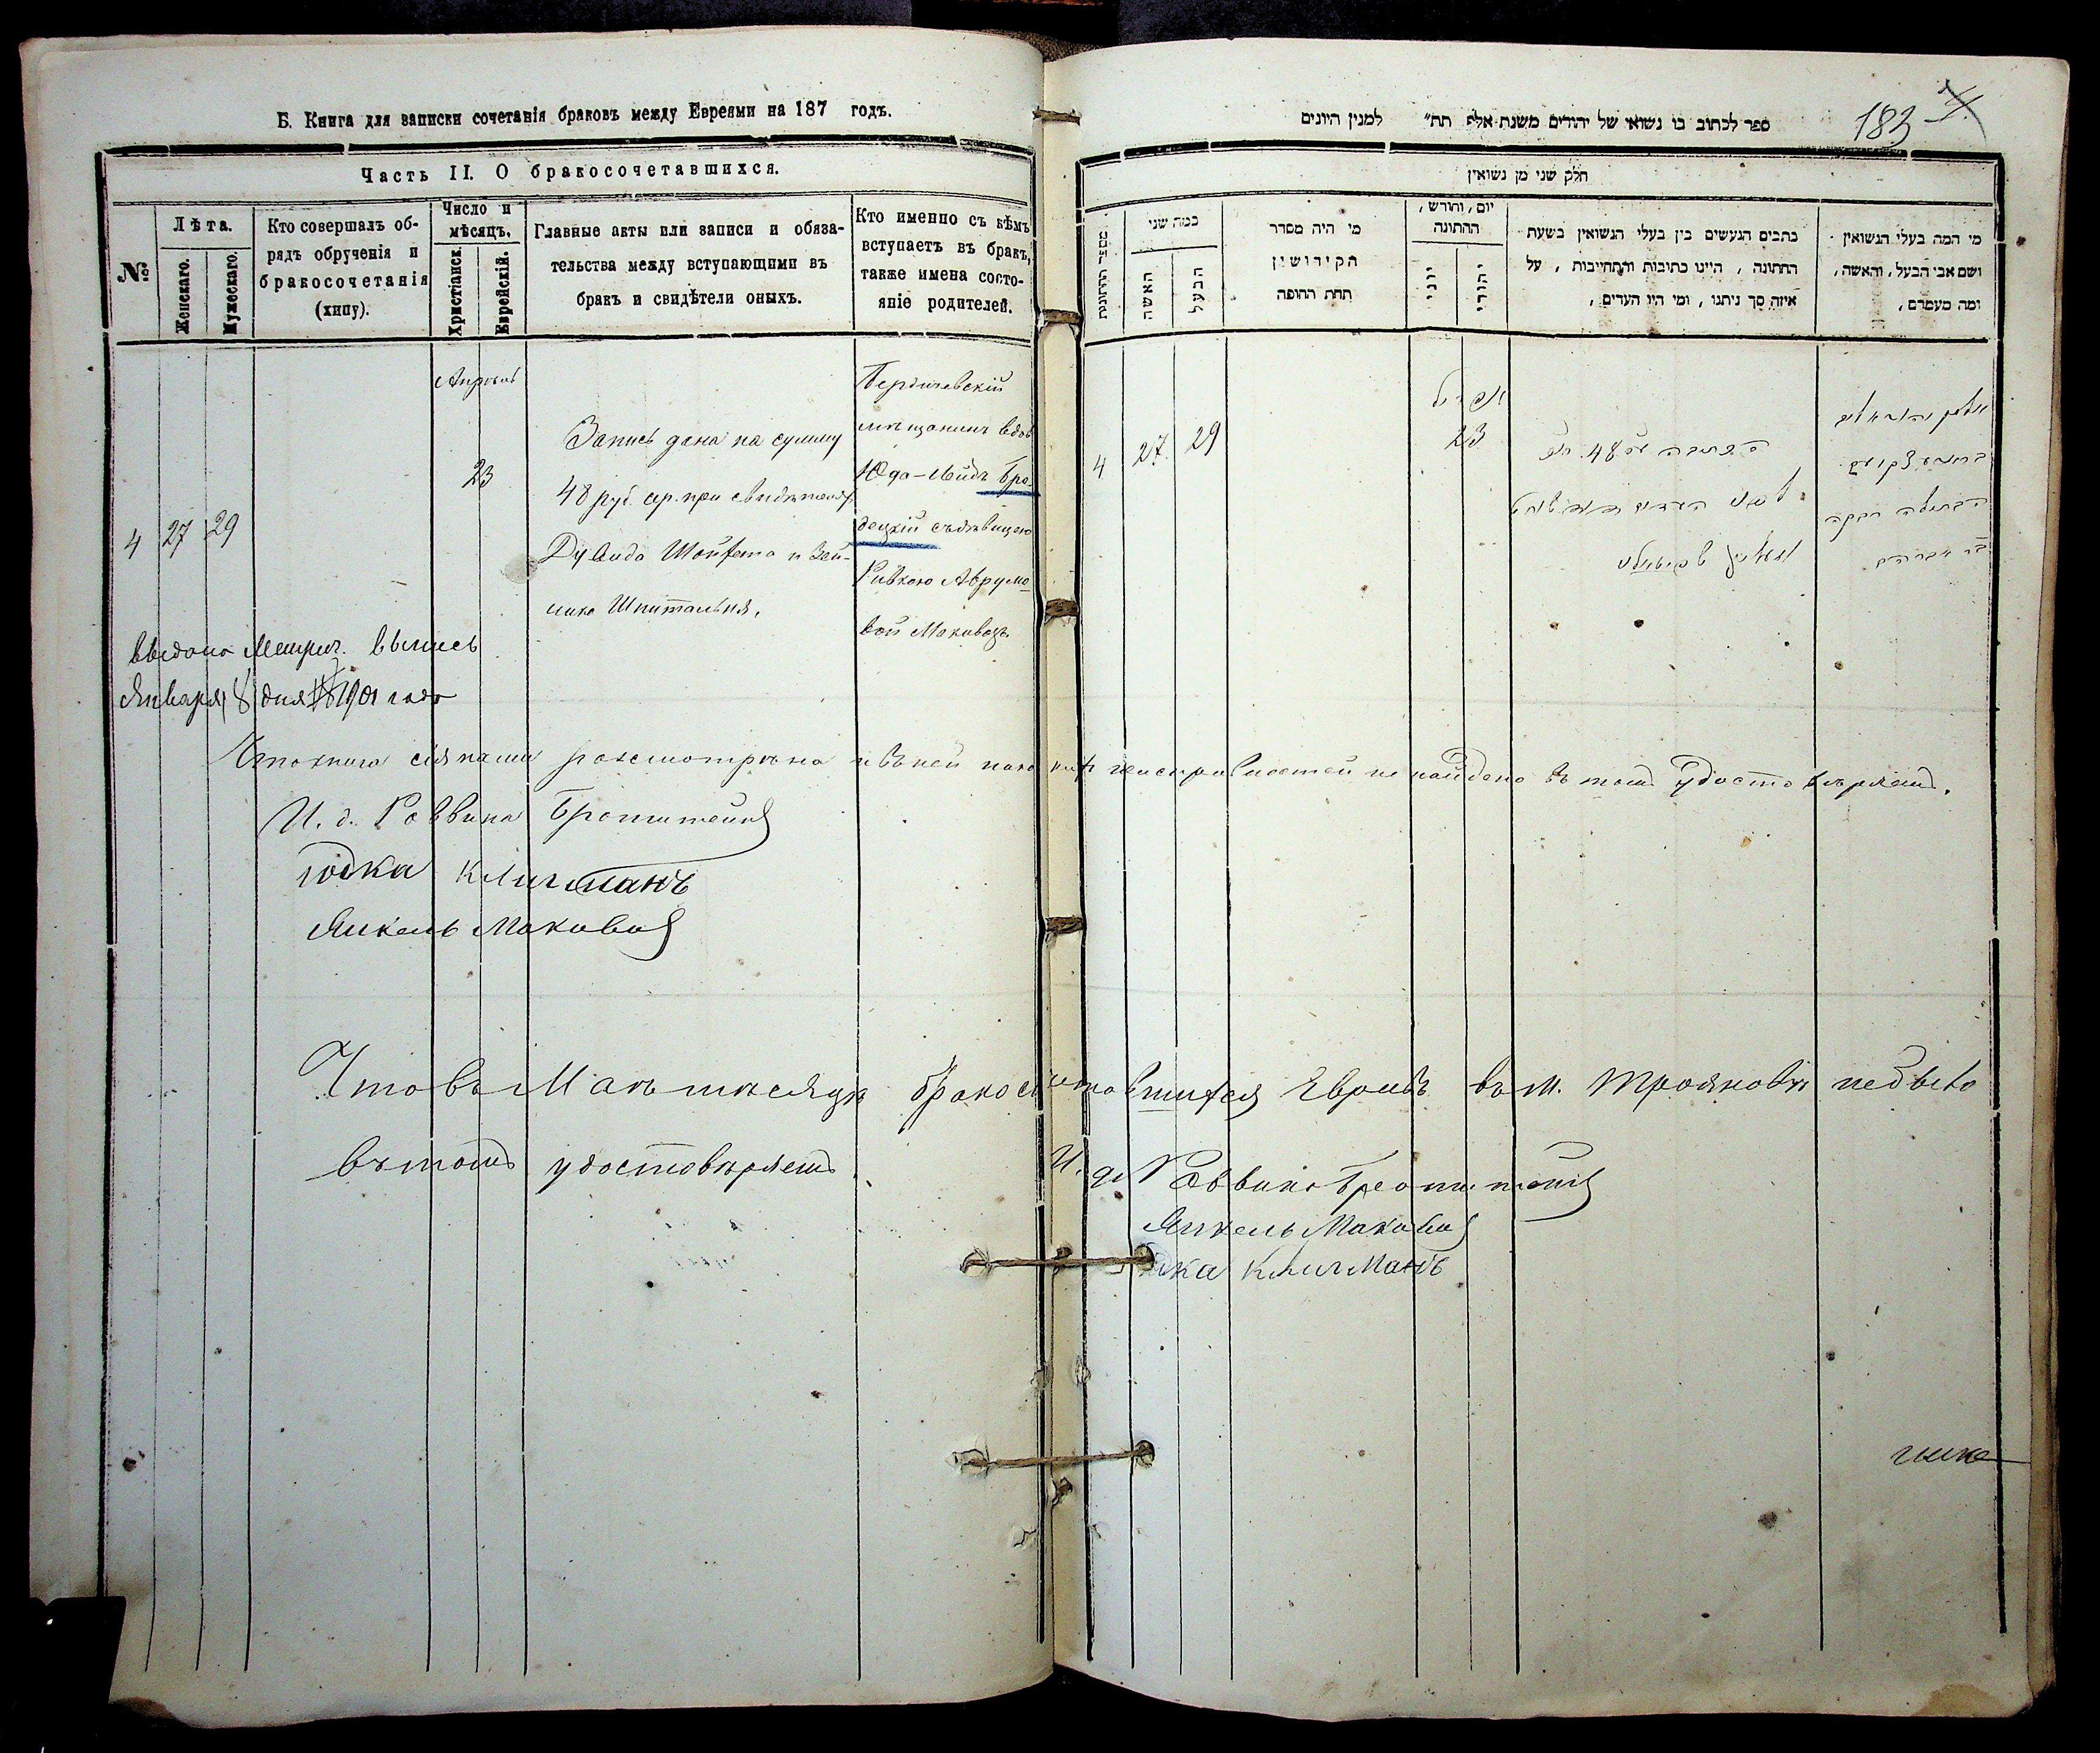 Б. Книга для записки сочетанія браковъ между Евреями на 187 годъ.
Часть II. О бракосочетавшихся.
№
Лѣта.
Женскаго.
Мужескаго.
Кто совершалъ об-
рядъ обрученія и
бракосочетанія
(хипу).
Число и
мѣсяцъ.
Христіанск.
Еврейскій.
Главные акты или записи и обяза-
тельства между вступающими въ
бракъ и свидѣтели оныхъ.
Кто именно съ кѣмъ
вступаетъ въ бракъ,
также имена состо-
яніе родителей.
4
27
29
Апрѣль
23
Запись дана на сумму
48 руб. ср. при свидѣтеляхъ
Шпитальня.
Бердичевскій
мѣщанинъ вдов
Юда-Лейдъ Бро-
децкій съ дѣвицею
Ривкою Аврумо-
вой Маковозъ
выдана Метрич. выпись
Января 8 дня 1901 года
Что книга сія нами разсмотрѣна и въ ней никакихъ неисправностей не найдено въ томъ удостовѣряемъ.
И. д. Раввина Бронштейнъ
Юдка Клигманъ
Янкель Маковоз
Что въ Маѣ мѣсяцѣ бракосочетавшихся Евреевъ въ м. Трояновѣ не было
въ томъ удостовѣряемъ
И. д. Раввина Бронштейнъ
Янкель Маковоз
Юдка Клигманъ
ספר לכתוב בו נשואי של יהודים משנת אלף תת״ למנין היונים
183
חלק שני מן נשואין
מספר החתונות
כמה שני
האשה
הבעל
מי היה מסדר
הקידושין
תחת החופה
יום, וחורש,
החתונה
יוני
יהודי
כתבים הנעשים בין בעלי הנשואין בשעת
החתונה, היינו כתובות והתחייבות, על
איזה סך ניתנו, ומי היו העדים,
מי המה בעלי הנשואין
ושם אבי הבעל, והאשה,
ומה מעמדם,
4
27
29
23
48